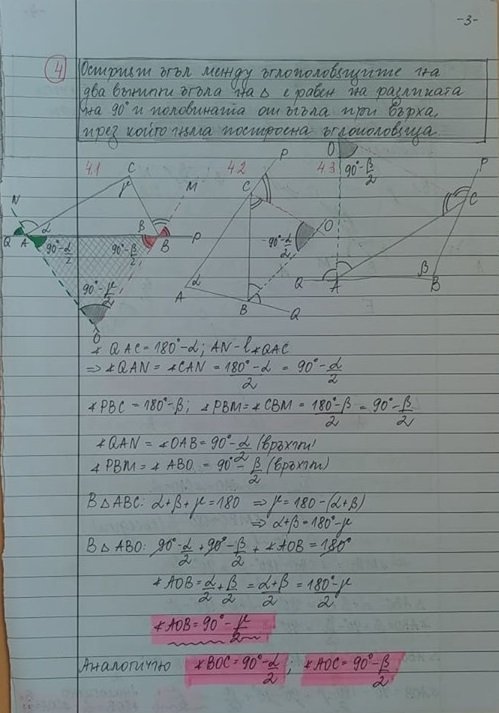 -3-
④ Острият ъгъл между ъглополовящите на
два външни ъгъла на △ е равен на разликата
на 90° и половината от ъгъла при върха,
през който няма построена ъглополовяща.
4.1 4.2 4.3
N C γ M Q A α β B P 90°-α/2 90°-β/2 90°-γ/2 O
P C O 90°-α/2 A α B Q
O 90°-β/2 P C Q A β B
∢QAC = 180°-α; AN - l ∢QAC
⇒ ∢QAN = ∢CAN = (180°-α)/2 = 90°-α/2
∢PBC = 180°-β; ∢PBM = ∢CBM = (180°-β)/2 = 90°-β/2
∢QAN = ∢OAB = 90°-α/2 (връхни)
∢PBM = ∢ABO = 90°-β/2 (връхни)
В △ABC: α+β+γ = 180 ⇒ γ = 180-(α+β)
⇒ α+β = 180°-γ
В △ABO: 90°-α/2 + 90°-β/2 + ∢AOB = 180°
∢AOB = α/2 + β/2 = (α+β)/2 = (180°-γ)/2
∢AOB = 90°-γ/2
Аналогично ∢BOC = 90°-α/2; ∢AOC = 90°-β/2